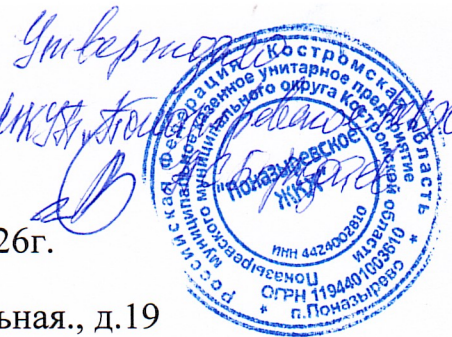 Утверждаю
Российская Федерация Костромская область
муниципальное казенное унитарное предприятие
Поназыревского муниципального округа Костромской области
"Поназыревское
ЖКХ"
ИНН 4424002810
ОГРН 1194401003610
п.Поназырево
26г.
ьная., д.19